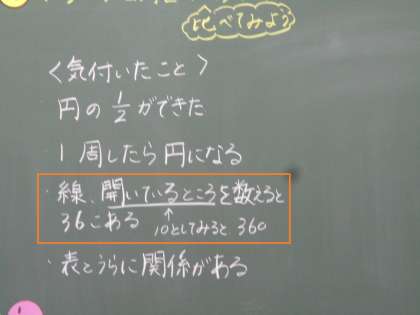 比べてみよう
<気付いたこと>
・円の1/2ができた
・1周したら円になる
・線、開いているところを数えると
36こある ↑10としてみると 360
・表とうらに関係がある